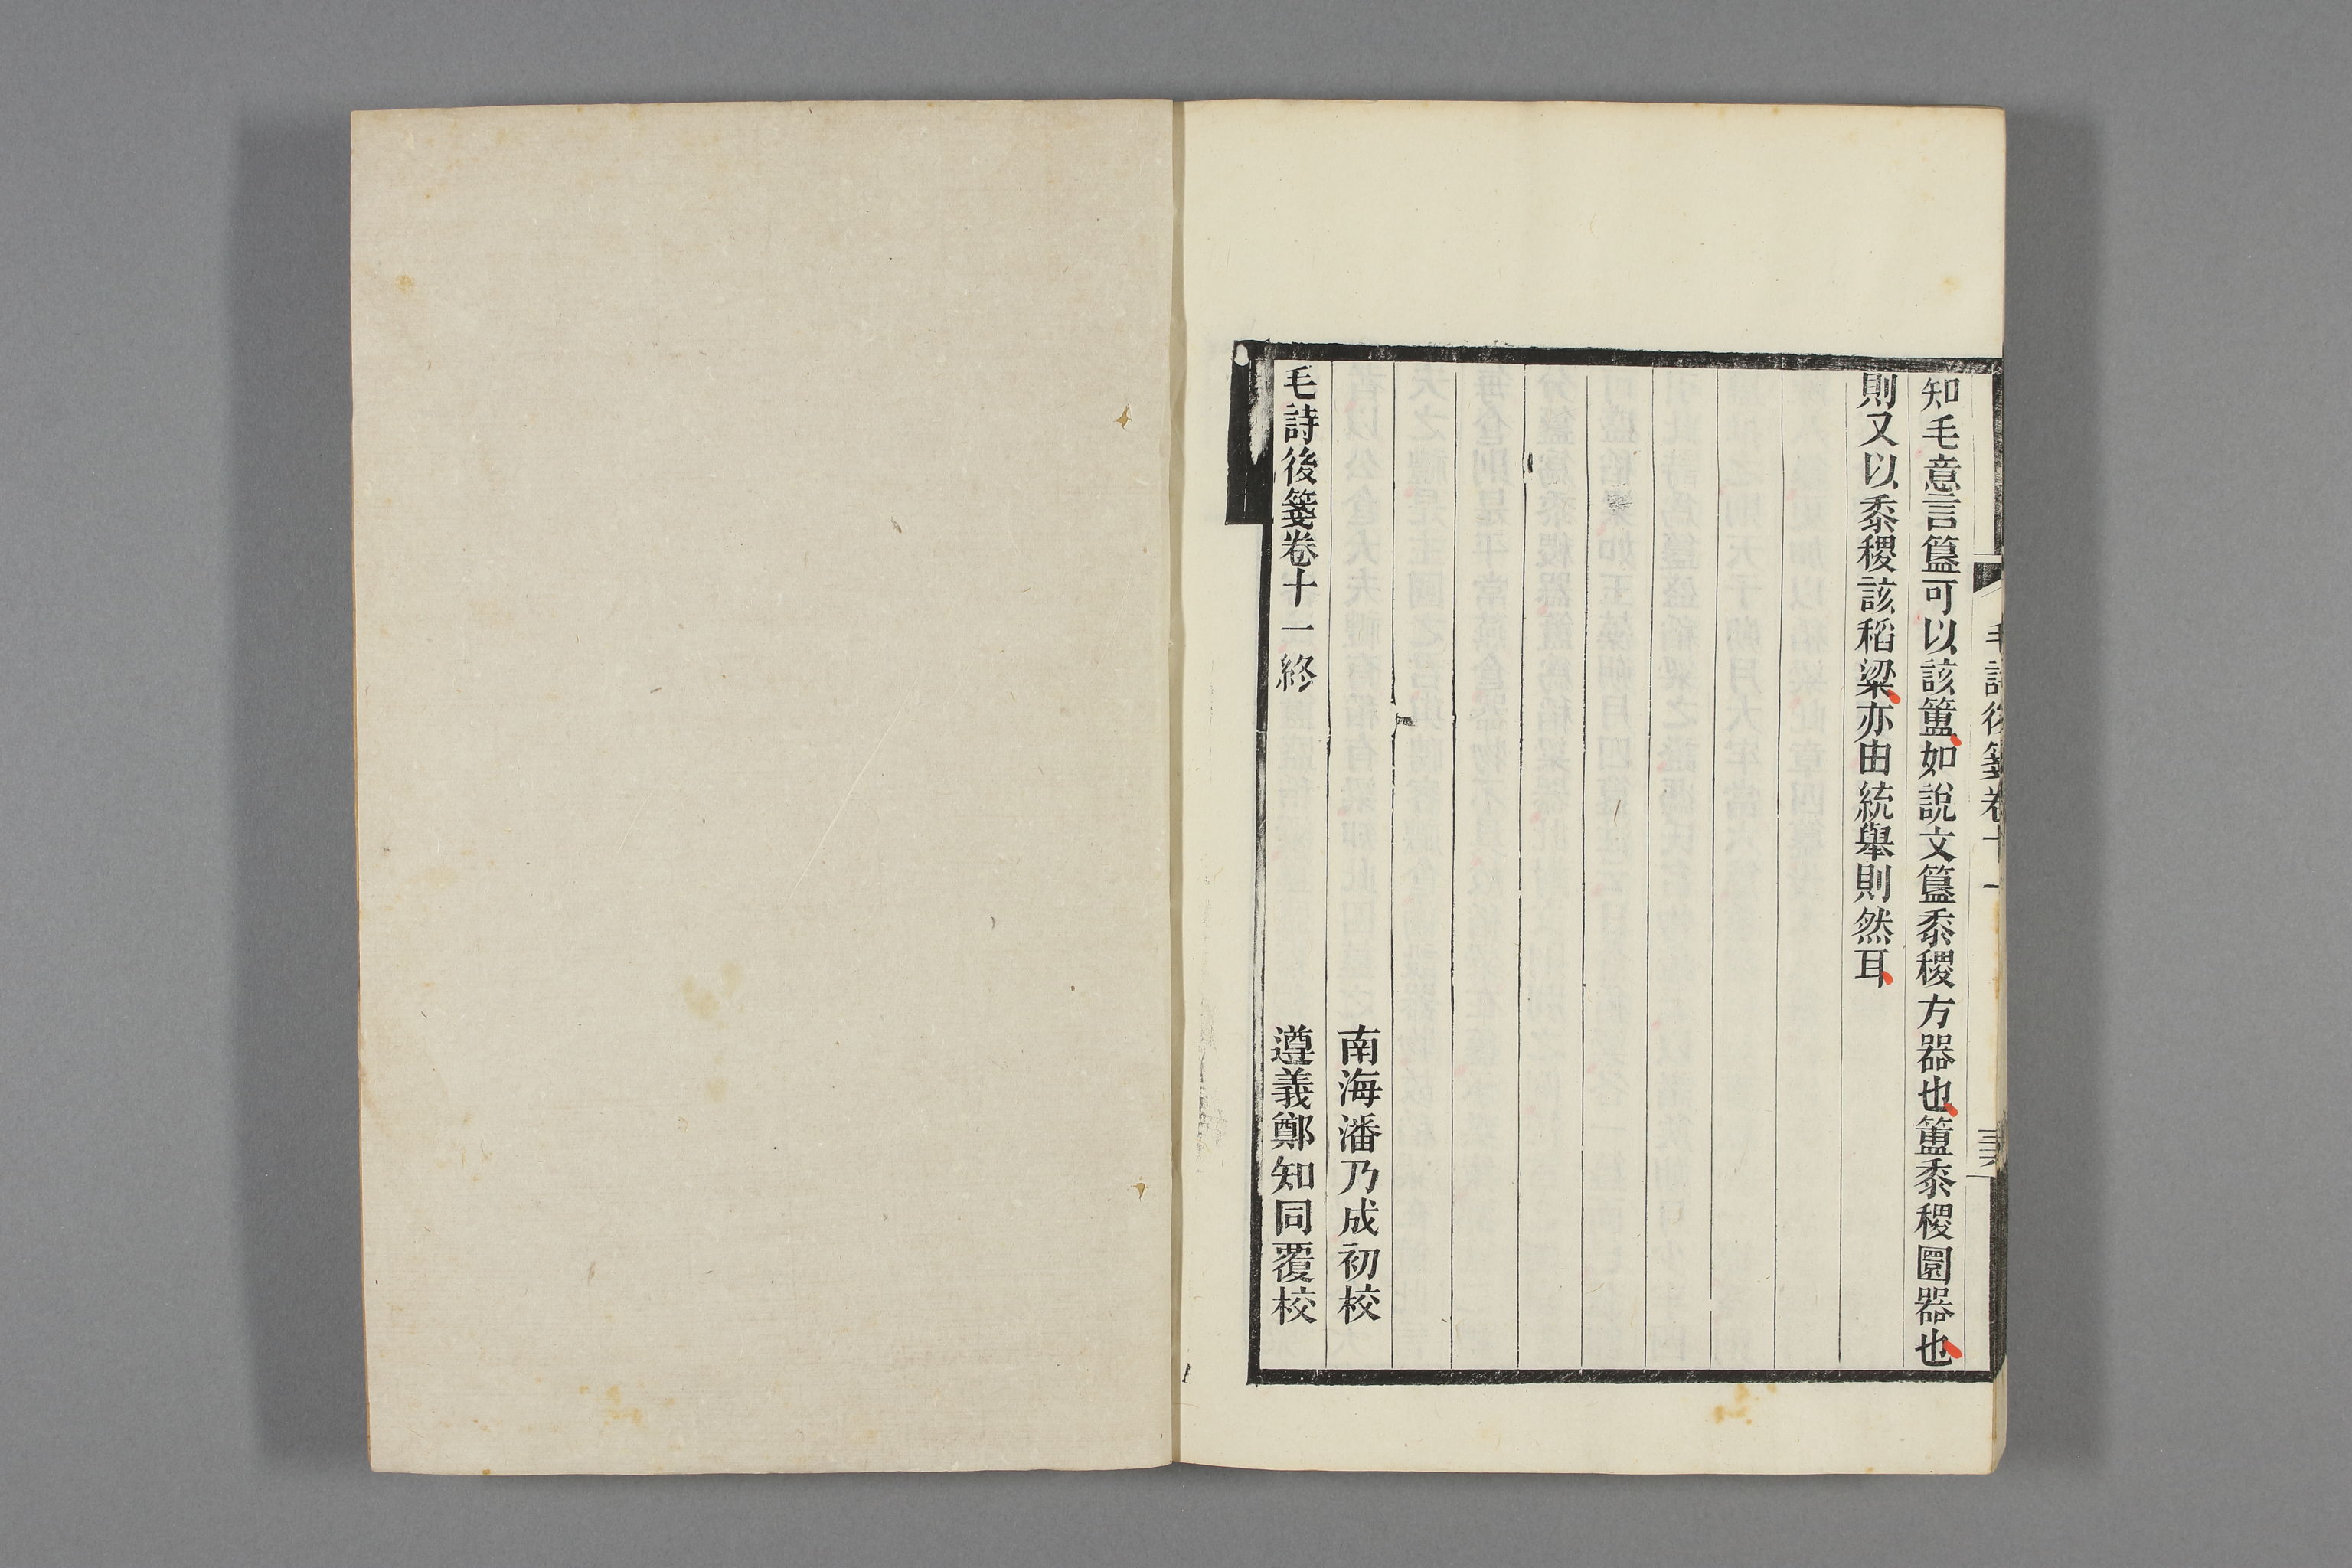 毛詩後箋卷十一
三六
知毛意言簋可以該簠如說文簋黍稷方器也簠黍稷圜器也
則又以黍稷該稻粱亦由統舉則然耳
南海潘乃成初校
毛詩後箋卷十一終
遵義鄭知同覆校